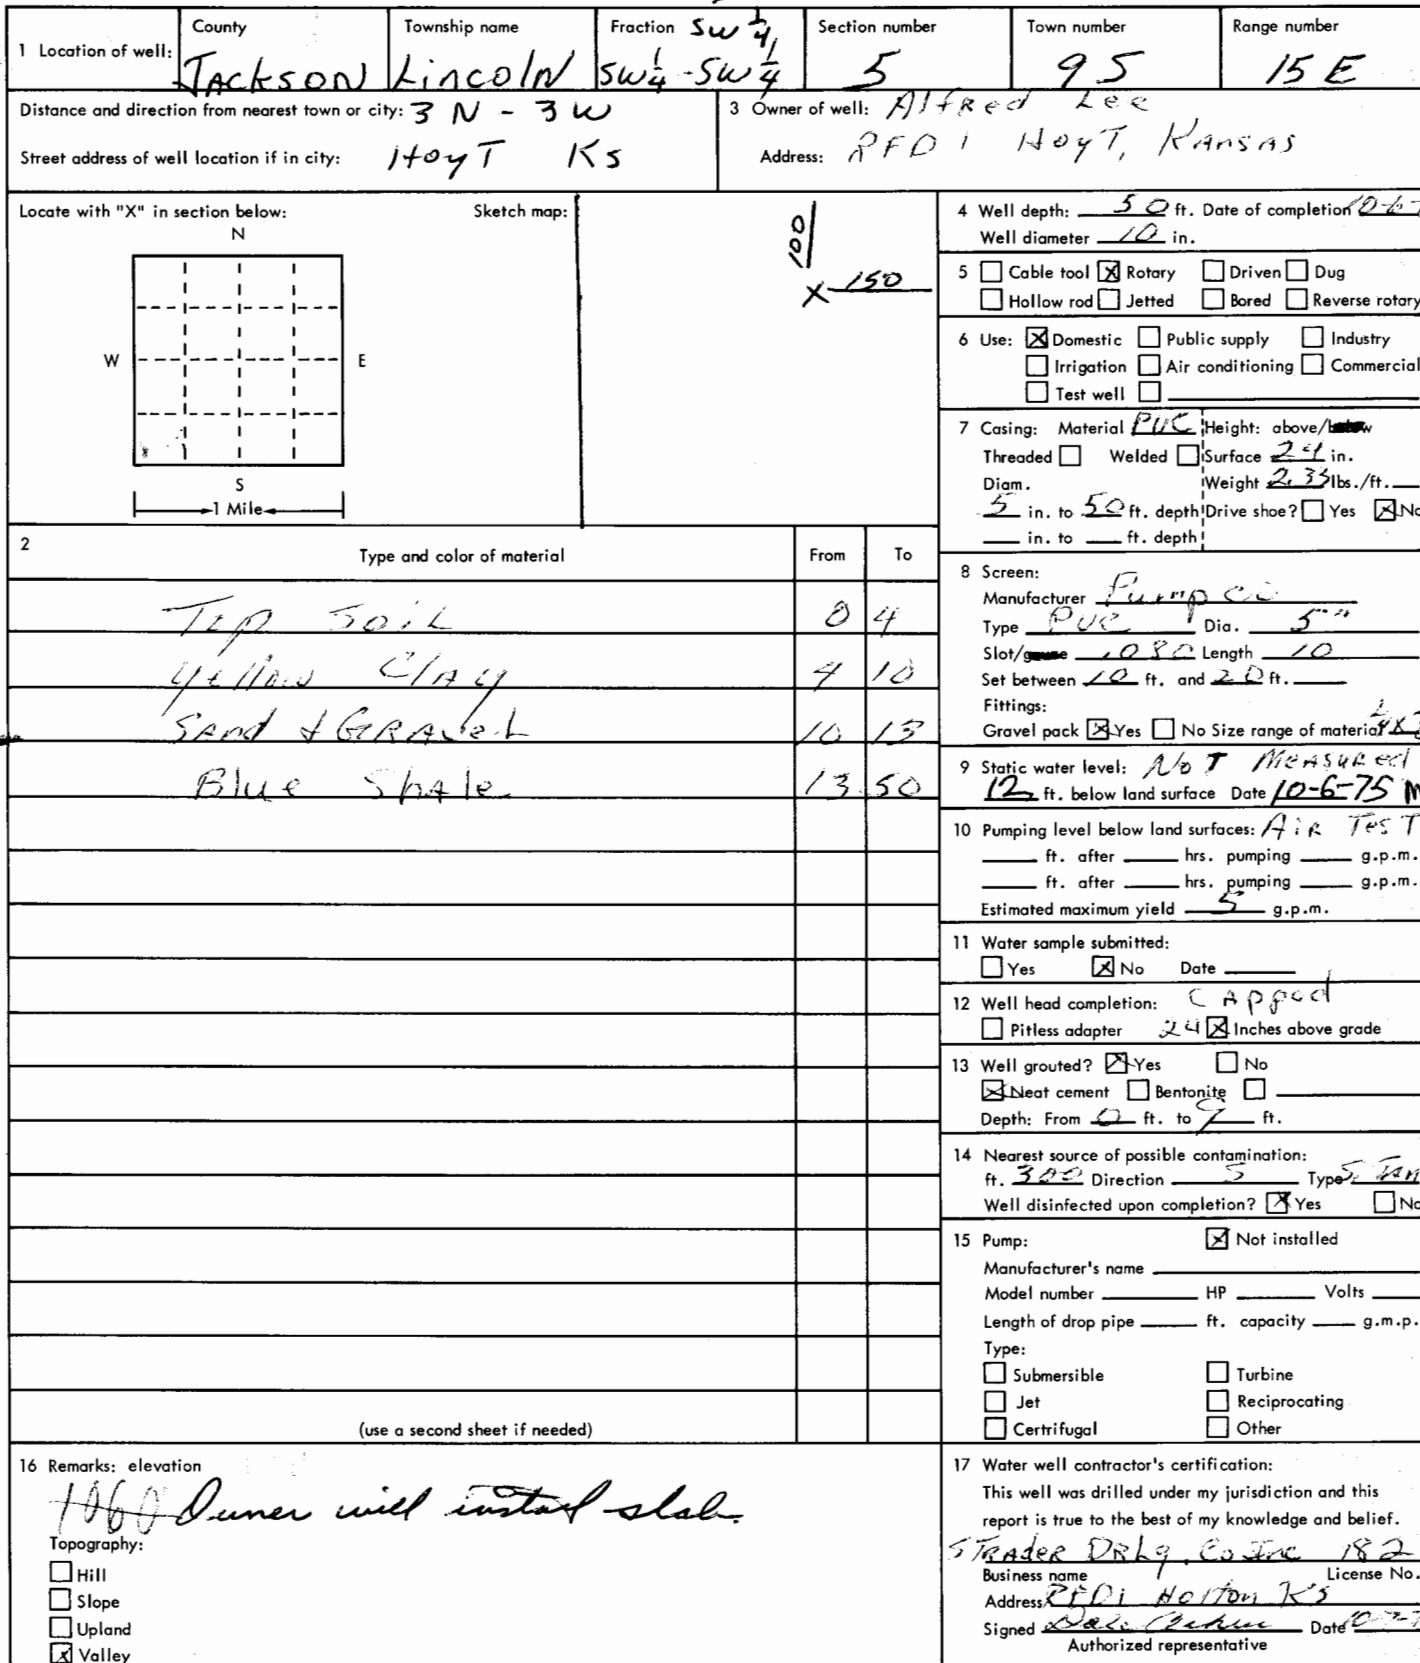 1 Location of well:
County
JACKSON
Township name
LINCOLN
Fraction SW 1/4
SW 1/4 - SW 1/4
Section number
5
Town number
9S
Range number
15 E
Distance and direction from nearest town or city: 3 N - 3 W
Street address of well location if in city: Hoyt Ks
3 Owner of well: Alfred Lee
Address: RFD 1 Hoyt, Kansas
Locate with "X" in section below:
Sketch map:
N
W
E
S
1 Mile
100
X 150
4 Well depth: 50 ft. Date of completion 10-6-
Well diameter 10 in.
5 Cable tool X Rotary Driven Dug
Hollow rod Jetted Bored Reverse rotary
6 Use: X Domestic Public supply Industry
Irrigation Air conditioning Commercial
Test well
7 Casing: Material PVC Height: above/below
Threaded Welded Surface 24 in.
Diam. Weight 2.35 lbs./ft.
5 in. to 50 ft. depth Drive shoe? Yes X No
in. to ft. depth
2
Type and color of material From To
Top Soil 0 4
Yellow Clay 4 10
Sand & Gravel 10 13
Blue Shale 13 50
(use a second sheet if needed)
8 Screen:
Manufacturer Pump Co
Type PVC Dia. 5"
Slot/gauze .080 Length 10
Set between 10 ft. and 20 ft.
Fittings:
Gravel pack X Yes No Size range of material
9 Static water level: Not Measured
12 ft. below land surface Date 10-6-75
10 Pumping level below land surfaces: Air Test
ft. after hrs. pumping g.p.m.
ft. after hrs. pumping g.p.m.
Estimated maximum yield 5 g.p.m.
11 Water sample submitted:
Yes X No Date
12 Well head completion: Capped
Pitless adapter 24 X Inches above grade
13 Well grouted? X Yes No
X Neat cement Bentonite
Depth: From 0 ft. to 9 ft.
14 Nearest source of possible contamination:
ft. 300 Direction S Type S. Tan
Well disinfected upon completion? X Yes No
15 Pump: X Not installed
Manufacturer's name
Model number HP Volts
Length of drop pipe ft. capacity g.m.p.
Type:
Submersible Turbine
Jet Reciprocating
Certrifugal Other
16 Remarks: elevation
1060 Owner will install slab.
Topography:
Hill
Slope
Upland
X Valley
17 Water well contractor's certification:
This well was drilled under my jurisdiction and this
report is true to the best of my knowledge and belief.
Strader Drlg. Co Inc 182
Business name License No.
Address RFD1 Holton Ks
Signed Date
Authorized representative